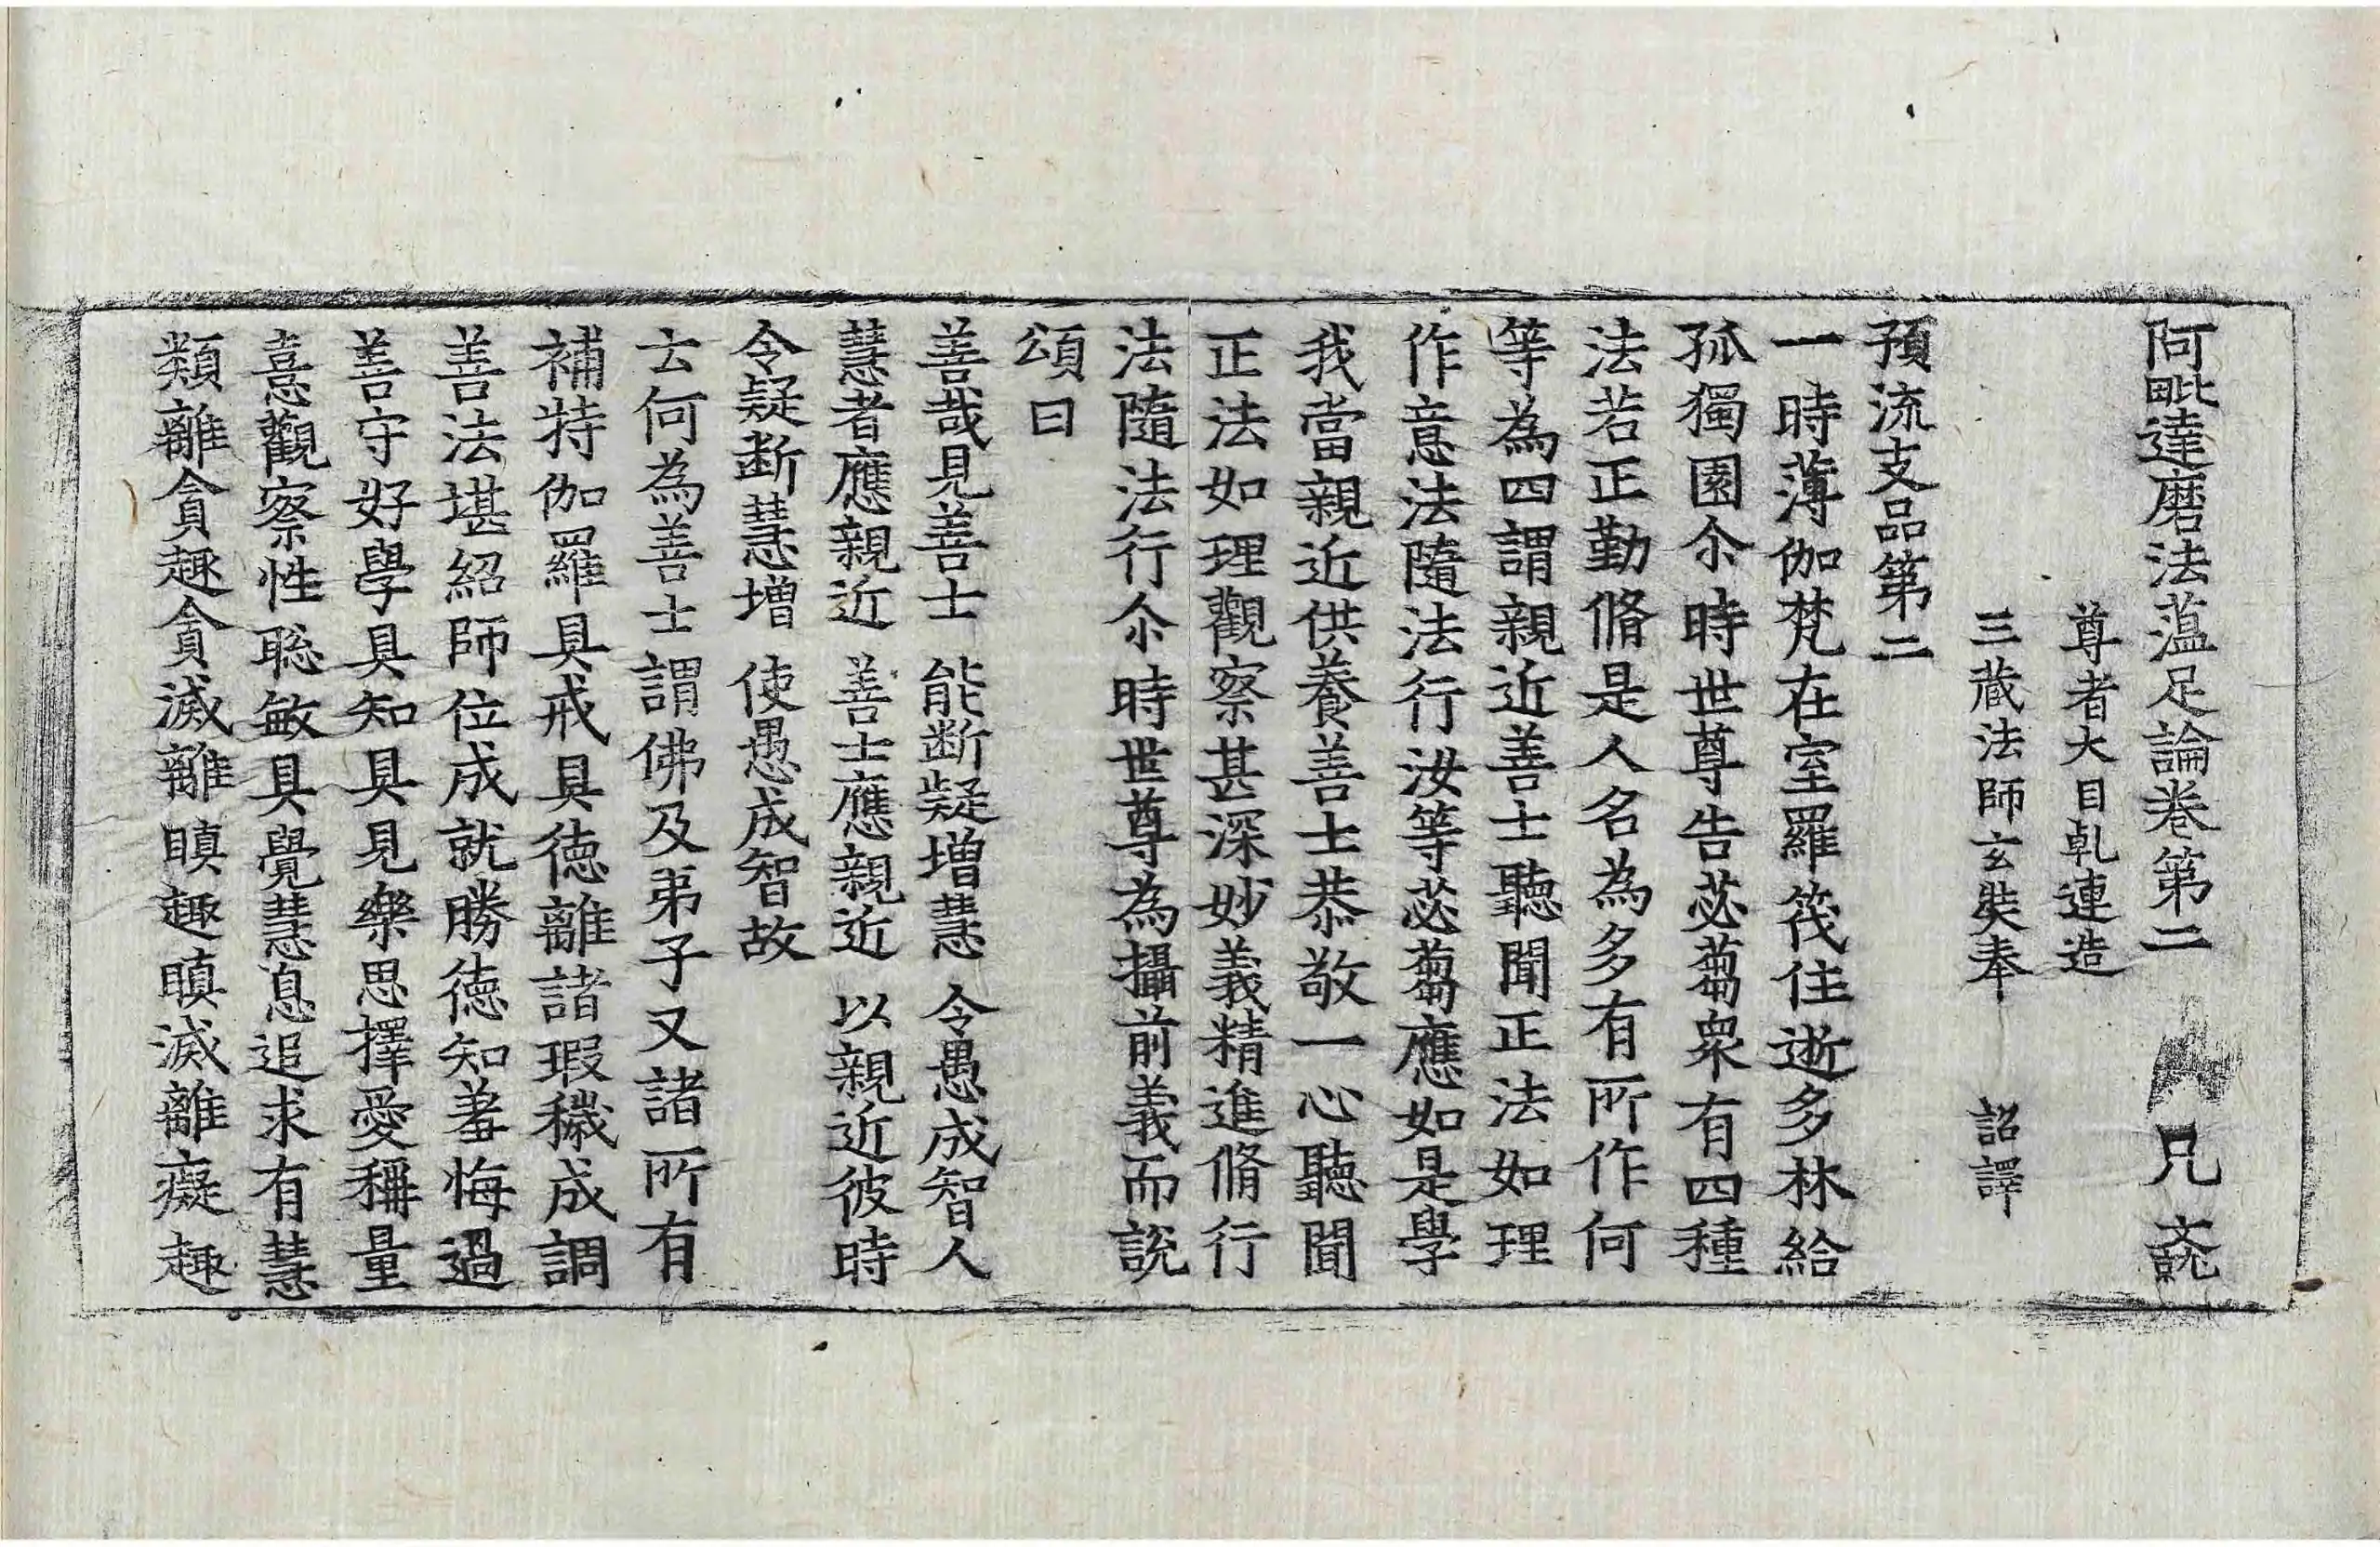 阿毗達磨法蕰足論卷第二 兄 𣫍
尊者大目乹連造
三蔵法師玄奘奉 詔譯
預流支品第二
一時薄伽梵在室羅筏住逝多林給
孤獨園尒時世尊告苾蒭衆有四種
法若正勤脩是人名為多有所作何
等為四謂親近善士聽聞正法如理
作意法隨法行汝等苾蒭應如是學
我當親近供養善士恭敬一心聽聞
正法如理觀察甚深妙義精進脩行
法隨法行尒時世尊為攝前義而說
頌曰
善哉見善士 能断疑增慧 令愚成智人
慧者應親近 善士應親近 以親近彼時
令疑断慧增 使愚成智故
云何為善士謂佛及弟子又諸所有
補特伽羅具戒具德離諸瑕穢成調
善法堪紹師位成就勝德知羞悔過
善守好學具知具見樂思擇愛稱量
憙觀察性聡敏具覺慧息追求有慧
類離貪趣貪滅離瞋趣瞋滅離癡趣